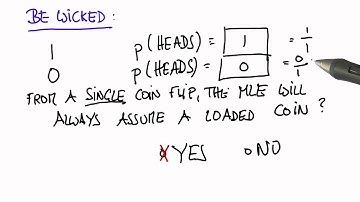 BE WICKED:
1 P(HEADS) = 1 = 1/1
0 P(HEADS) = 0 = 0/1
FROM A SINGLE COIN FLIP, THE MLE WILL
ALWAYS ASSUME A LOADED COIN?
YES NO